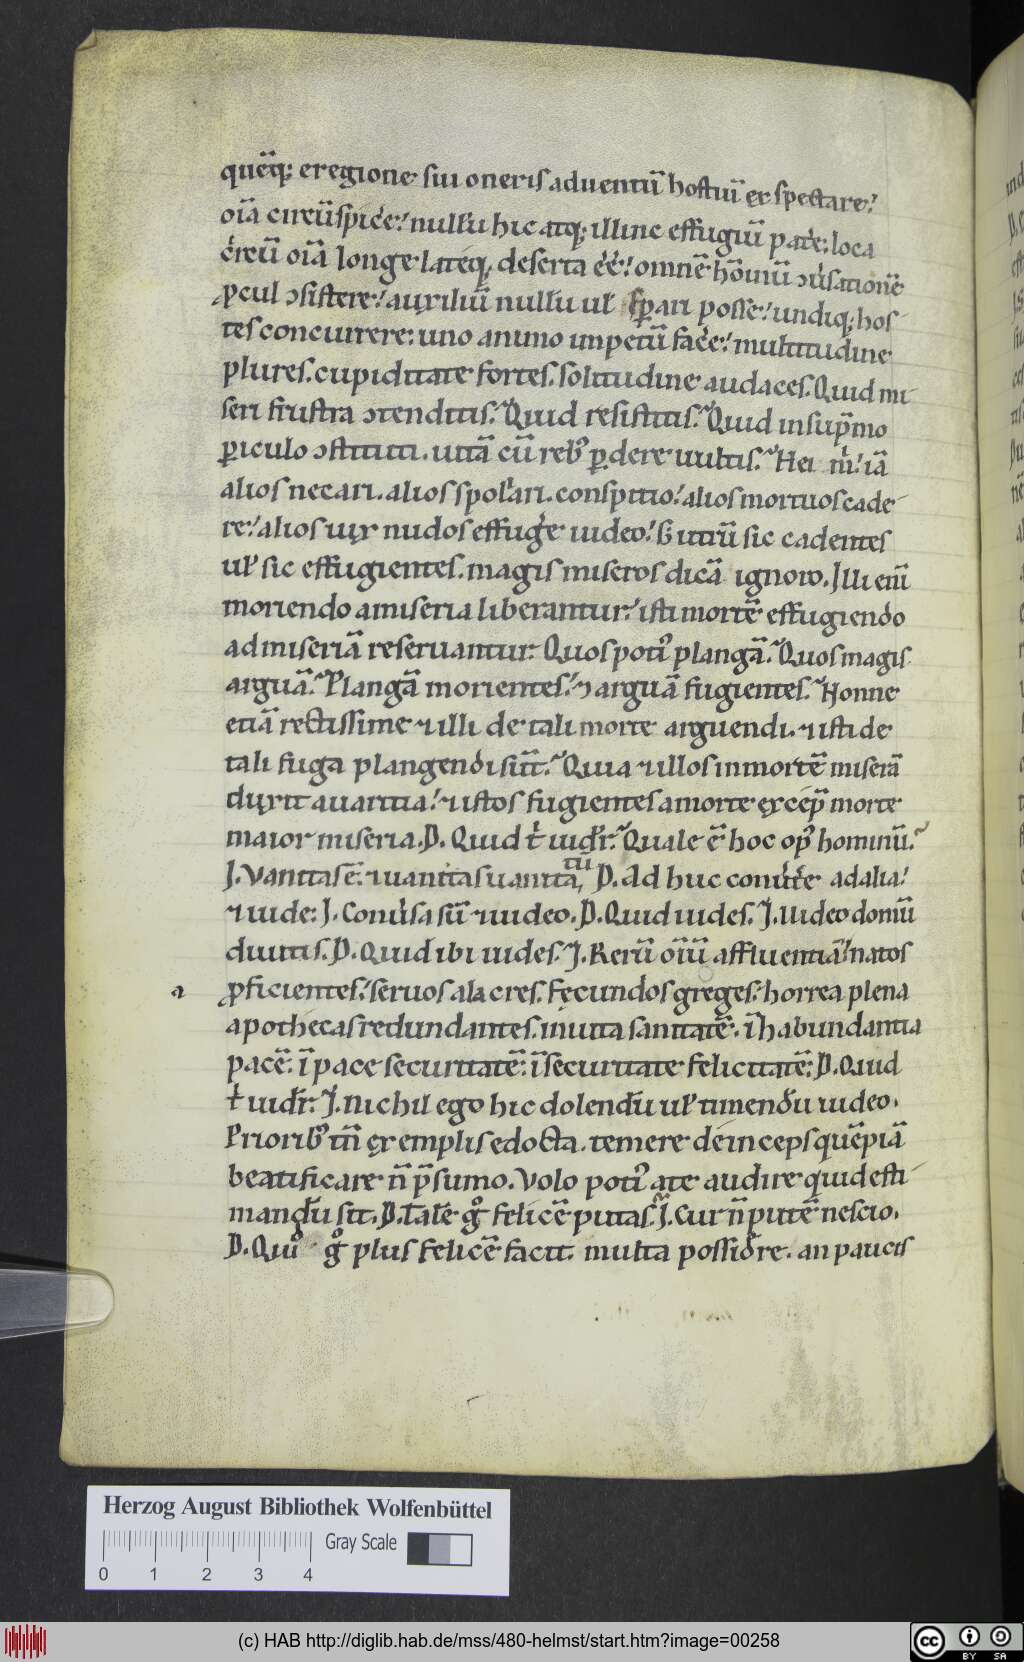 quēq; e regione siui oneris aduentū hostiū ex spectare!
oīa circūspicėe! nullū hic atq; illinc effugiū patėe; loca
ċrcū oīa longe lateq; deserta éé! omnē hōinū ɔuṡationē
ꝓcul ɔsistere! auxiliū nullū uł sꝑari posse! undiq; hos
tes concurrere; uno animo impetū facėe! multitudine
plures. cupiditate fortes. solitudine audaces. Quid mi
seri frustra ɔtenditis? Quid resistitis? Quid in sup̄mo
ꝑiculo ɔstituti. uitā cū rebꝰ ꝑdere uultis? Hei m̍! iā
alios necari. alios spoliari. conspitio! alios mortuos cade
re! alios uix nudos effugėe uideo! S; utrū sic cadentes
uł sic effugientes. magis miseros dicā ignoro. Illi eni̅
moriendo a miseria liberantur! isti mortē effugiendo
ad miseriā reseruantur. Quos potiꝰ plangā? Quos magis
arguā? Plangā morientes! ⁊ arguā fugientes? Nonne
etiā rectissime ⁊ illi de tali morte arguendi. ⁊ isti de
tali fuga plangendi sūt? Quia ⁊ illos in mortē miserā
duxit auaritia! ⁊ istos fugientes a morte excep̄ morte
maior miseria. D. Quid t̍ uidr̄? Quale ē hoc opꝰ hominū?
I. Vanitas ē. ⁊ uanitas uanitatū. D. Ad huc conuṫe ad alia!
⁊ uide; I. Conuṡa sū ⁊ uideo. D. Quid uides. I. Uideo domū
diuitis. D. Quid ibi uides. I. Rerū oīū affluentiā! natos
ꝓficientes! seruos alacres. fecundos greges! horrea plena
apothecas redundantes. in uita sanitatē. ī habundantia
pacē. ī pace securitatē. ī securitate felicitatē; D. Quid
t̍ uidr̄. I. Nichil ego hic dolendū uł timendū uideo.
Prioribꝰ tn̄ exemplis edocta. temere deinceps quēpiā
beatificare n̄ p̄sumo. Volo potiꝰ a te audire quid esti
mandū sit. D. Talē gͦ felicē putas? I. Cur n̄ putē nescio.
D. Quͥ gͦ plus felicē facit. multa possidėre. an paucis
Herzog August Bibliothek Wolfenbüttel
Gray Scale
0 1 2 3 4
(c) HAB http://diglib.hab.de/mss/480-helmst/start.htm?image=00258
cc BY SA